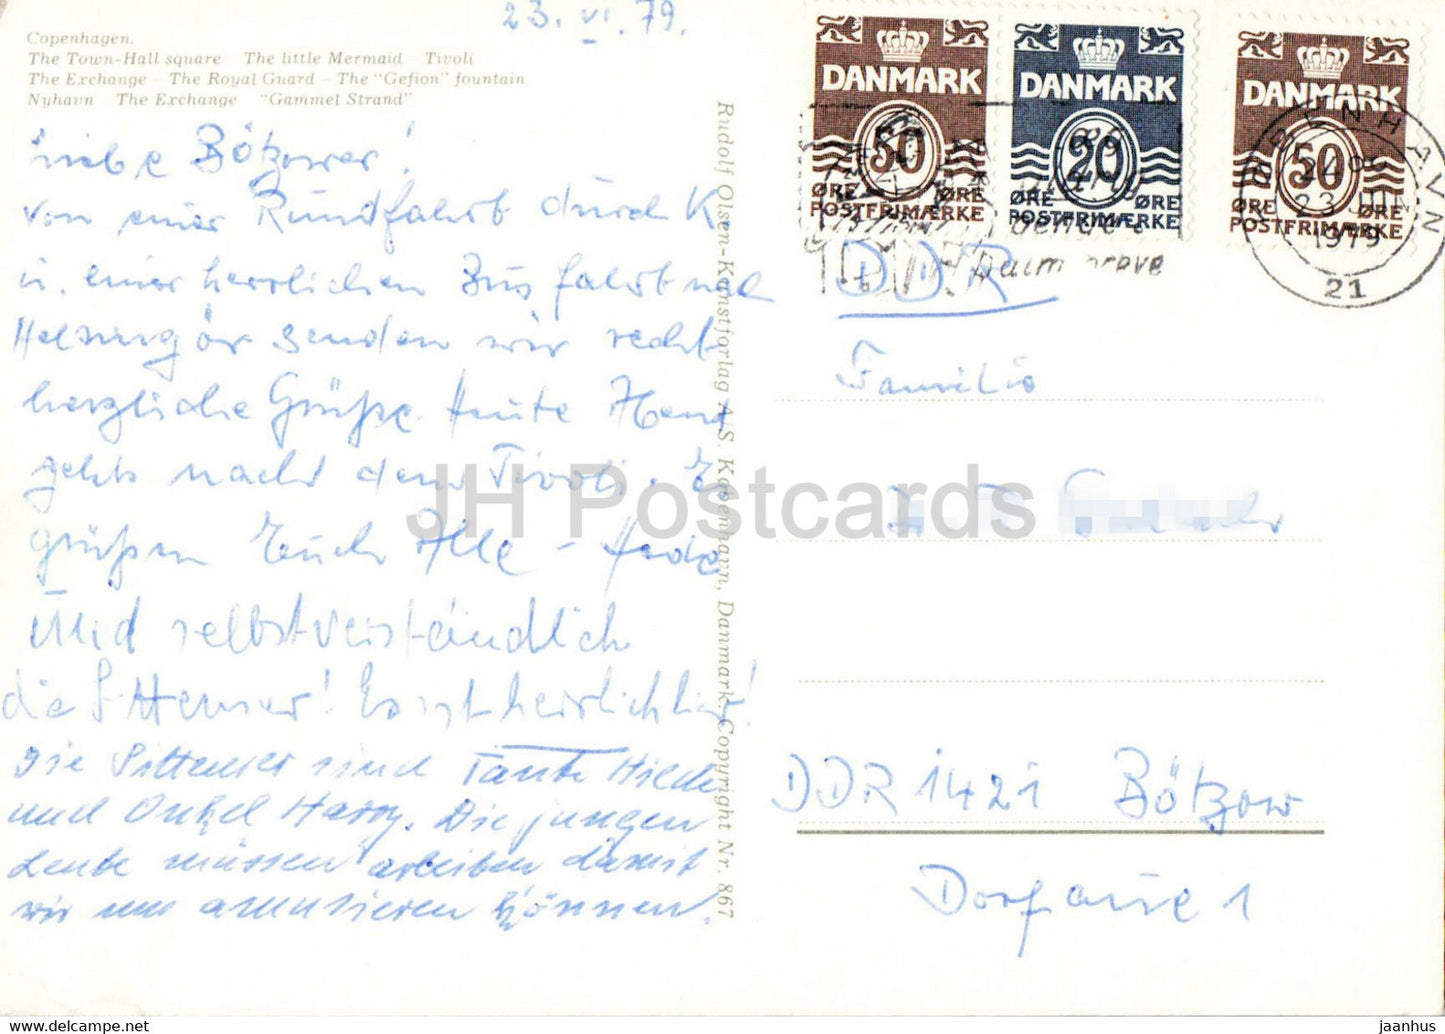 23. VI. 79.
Copenhagen.
The Town-Hall square The little Mermaid Tivoli
The Exchange The Royal Guard The "Gefion" fountain
Nyhavn The Exchange "Gammel Strand"
Liebe Bötzower!
von einer Rundfahrt durch K
u. einer herrlichen Busfahrt nach
Helsingör senden wir recht
herzliche Grüße. Heute Abend
gehts nach dem Tivoli. Es
grüßen Euch Alle –
Und selbstverständlich
die Sittenser! Es ist herrlich hier!
Die Sittenser sind Tante Hilde
und Onkel Harry. Die jungen
Leute müssen arbeiten damit
wir uns amüsieren können.
Rudolf Olsen-Kunstforlag A/S. København, Danmark Copyright Nr. 867
DANMARK
50
ØRE ØRE
POSTFRIMÆRKE
DANMARK
20
ØRE ØRE
POSTFRIMÆRKE
DANMARK
50
ØRE ØRE
POSTFRIMÆRKE
KØBENHAVN
23 JUN
1979
21
DDR
Familie
DDR 1421 Bötzow
Dorfaue 1
JH Postcards
www.hippostcard.com
jaanhus